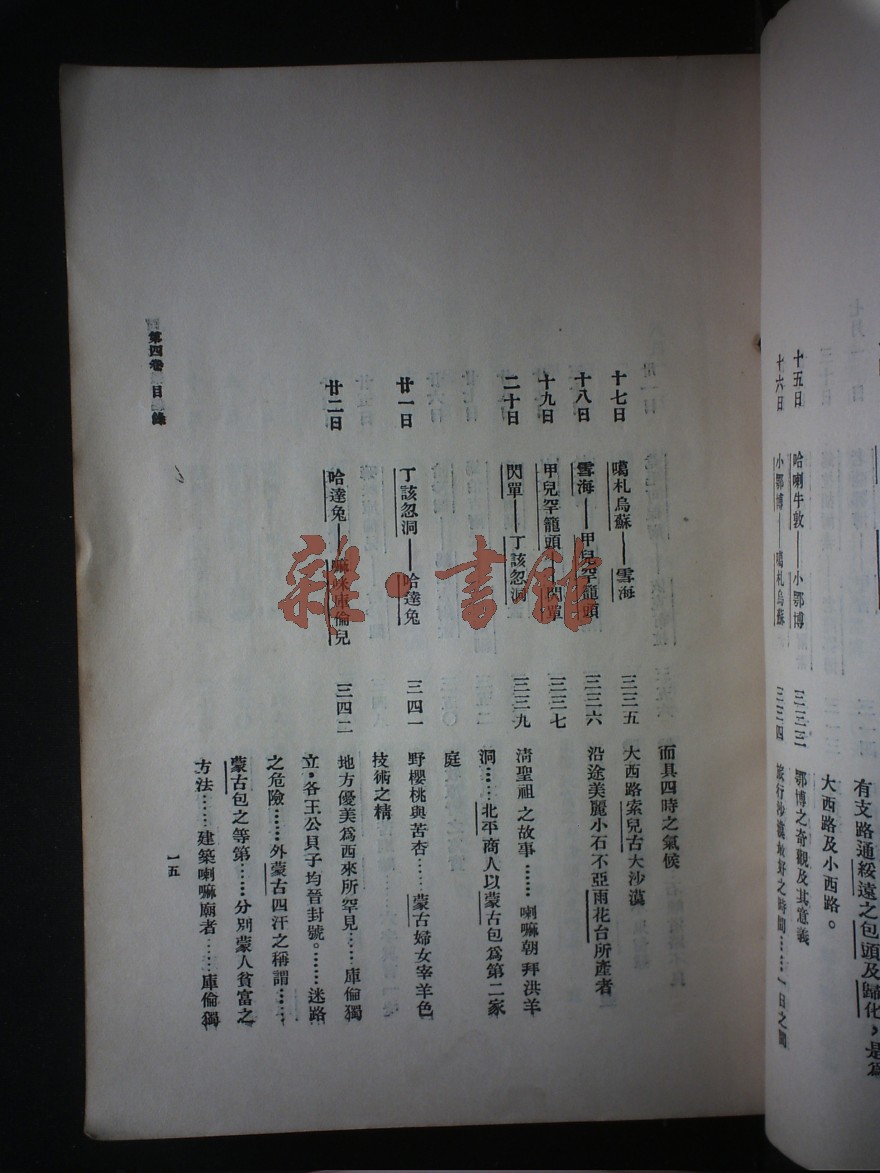 有支路通綏遠之包頭及歸化，是爲
大西路及小西路。
十五日 哈喇牛敦——小鄂博 三三三 鄂博之奇觀及其意義
十六日 小鄂博——噶札烏蘇 三三四 旅行沙漠最好之時間……一日之間
而具四時之氣候
十七日 噶札烏蘇——雪海 三三五 大西路索兒古大沙漠
十八日 雪海——甲兒罕籠頭 三三六 沿途美麗小石不亞雨花台所產者
十九日 甲兒罕籠頭——閃單 三三七
二十日 閃單——丁該忽洞 三三九 清聖祖之故事……喇嘛朝拜洪羊
洞……北平商人以蒙古包爲第二家
庭
廿一日 丁該忽洞——哈達兔 三四一 野櫻桃與苦杏……蒙古婦女宰羊色
技術之精
廿二日 哈達兔——嘛咪庫倫兒 三四二 地方優美爲西來所罕見……庫倫獨
立·各王公貝子均晉封號。……迷路
之危險……外蒙古四汗之稱謂……
蒙古包之等第……分別蒙人貧富之
方法……建築喇嘛廟者……庫倫獨
第四卷 目錄
一五
雜·書館